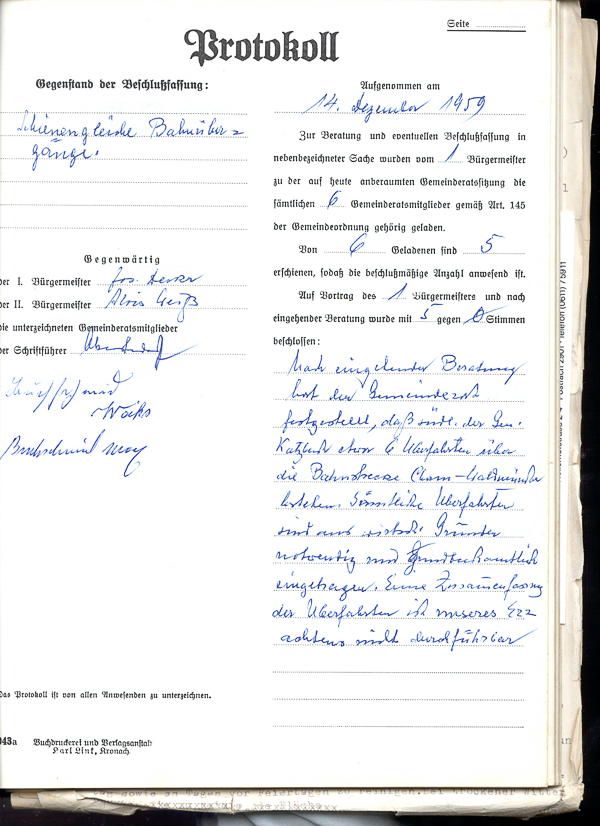 Seite
Protokoll
Gegenstand der Beschlußfassung:
Schienengleiche Bahnüber=
gänge.
Gegenwärtig
der I. Bürgermeister Jos.
der II. Bürgermeister Alois
die unterzeichneten Gemeinderatsmitglieder
der Schriftführer
Das Protokoll ist von allen Anwesenden zu unterzeichnen.
943a Buchdruckerei und Verlagsanstalt
Karl Link, Kronach
Aufgenommen am
14. Dezember 1959
Zur Beratung und eventuellen Beschlußfassung in
nebenbezeichneter Sache wurden vom 1 Bürgermeister
zu der auf heute anberaumten Gemeinderatssitzung die
sämtlichen 6 Gemeinderatsmitglieder gemäß Art. 145
der Gemeindeordnung gehörig geladen.
Von 6 Geladenen sind 5
erschienen, sodaß die beschlußmäßige Anzahl anwesend ist.
Auf Vortrag des 1 Bürgermeisters und nach
eingehender Beratung wurde mit 5 gegen 0 Stimmen
beschlossen:
Nach eingehender Beratung
hat der Gemeinderat
festgestellt, daß südl. der Gem.
Katzbach etwa 6 Überfahrten über
die Bahnstrecke Cham-Waldmünchen
bestehen. Sämtliche Überfahrten
sind aus wirtsch. Gründen
notwendig und Grundbuchamtlich
eingetragen. Eine Zusammenfassung
der Überfahrten ist unseres Er=
achtens nicht durchführbar